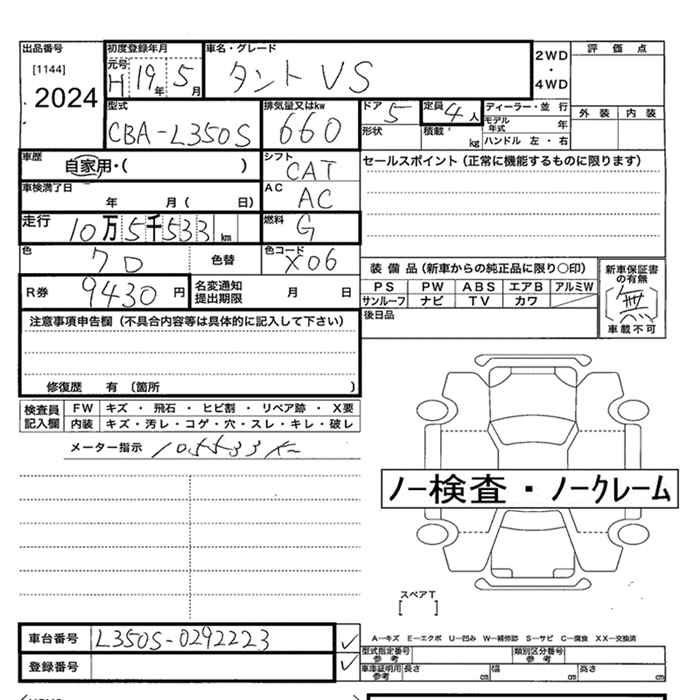 出品番号 初度登録年月 車名・グレード 評価点
[1144] 元号 2WD
H 19年 5月 タント VS ・
2024 4WD
型式 排気量又はkw ドア 5 定員 4人 ディーラー・並行 外装 内装
CBA-L350S 660 モデル年式 年
形状 積載 kg ハンドル 左・右
車歴 自家用・( ) シフト CAT セールスポイント(正常に機能するものに限ります)
車検満了日 年 月( 日) AC AC
走行 10万5千533km 燃料 G
色 色替 色コード X06
装備品(新車からの純正品に限り○印) 新車保証書の有無
R券 9430円 名変通知提出期限 月 日 PS PW ABS エアB アルミW 無
サンルーフ ナビ TV カワ 車載不可
注意事項申告欄(不具合内容等は具体的に記入して下さい) 後日品
修復歴 有〔箇所 )
検査員記入欄 FW キズ・飛石・ヒビ割・リペア跡・X要
内装 キズ・汚レ・コゲ・穴・スレ・キレ・破レ
メーター指示 105533K
ノー検査・ノークレーム
スペアT
[ ]
車台番号 L350S-0292223 A―キズ E―エクボ U―凹み W―補修跡 S―サビ C―腐食 XX―交換済
型式指定番号参考 類別区分番号参考
登録番号 車庫証明用参考 長さ cm 幅 cm 高さ cm